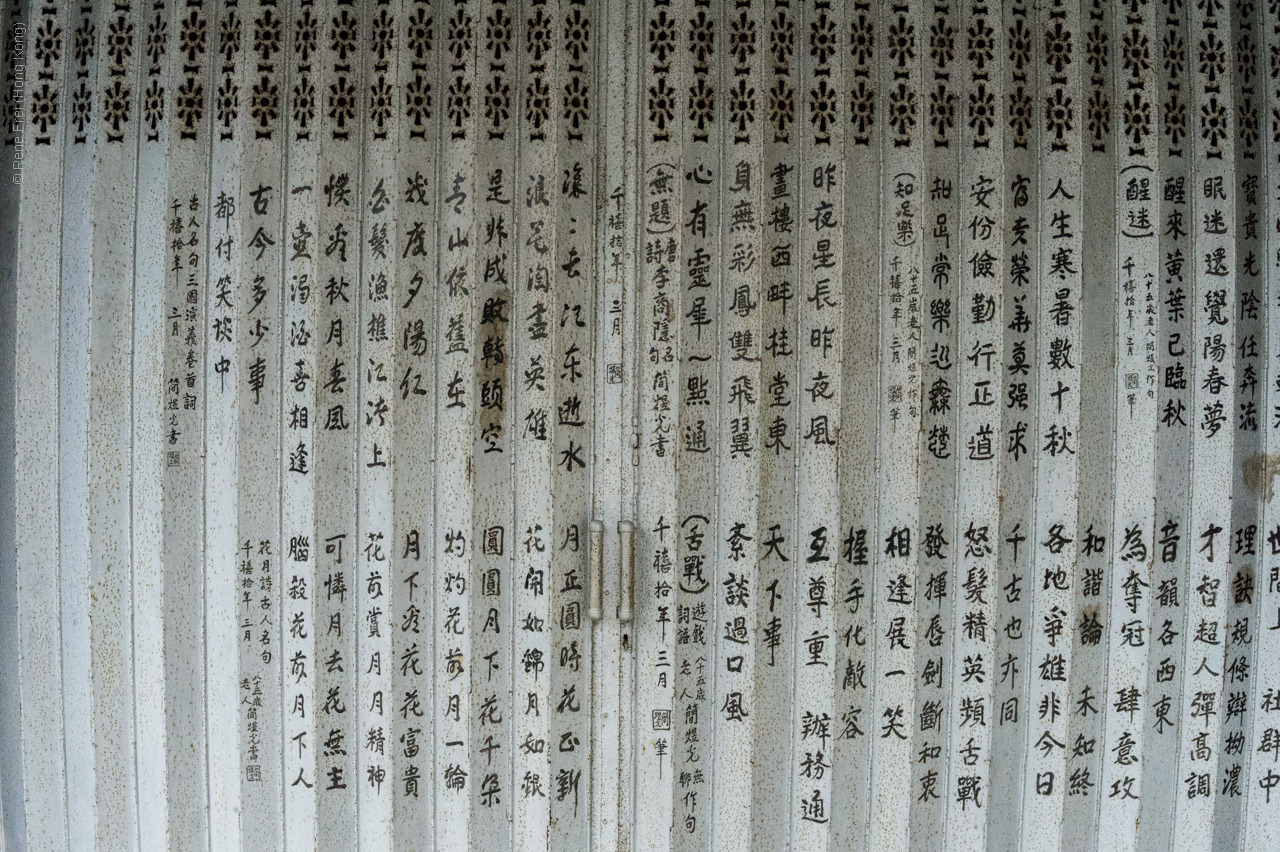 寶貴光陰任奔流
眠迷還覺陽春夢
醒來黃葉已臨秋
（醒迷）
八十五歲老人簡煜光作句
千禧拾年 三月 筆
人生寒暑數十秋
富貴榮華莫强求
安份儉勤行正道
知足常樂
（知足樂）
八十五歲老人簡煜光作句
千禧拾年 三月 筆
昨夜星長昨夜風
畫樓西畔桂堂東
身無彩鳳雙飛翼
心有靈犀一點通
（無題）唐詩李商隱名句 簡煜光書
千禧拾年 三月
世間上 社群中
理訣規條辯拗濃
才智超人彈高調
音韻各西東
為奪冠 肆意攻
和諧論 未知終
各地爭雄非今日
千古也亦同
怒髮精英頻舌戰
發揮唇劍斷和衷
相逢展一笑
握手化敵容
互尊重 辦務通
天下事
紊談過口風
（舌戰）遊戲詞語 八十五歲老人簡煜光無聊作句
千禧拾年 三月 筆
滾滾長江东逝水
浪花淘盡英雄
是非成敗轉頭空
青山依舊在
幾度夕陽紅
白髮漁樵江渚上
慣看秋月春風
一壺濁酒喜相逢
古今多少事
都付笑談中
古人名句三國演義卷首詞
千禧拾年 三月 簡煜光書
月正圓時花正新
花開如錦月如銀
圓圓月下花千朵
灼灼花前月一輪
月下看花花富貴
花前賞月月精神
可憐月去花無主
腦殺花前月下人
花月詩古人名句
千禧拾年 三月
八十五歲老人簡煜光書
© Rene Frei (Hong Kong)